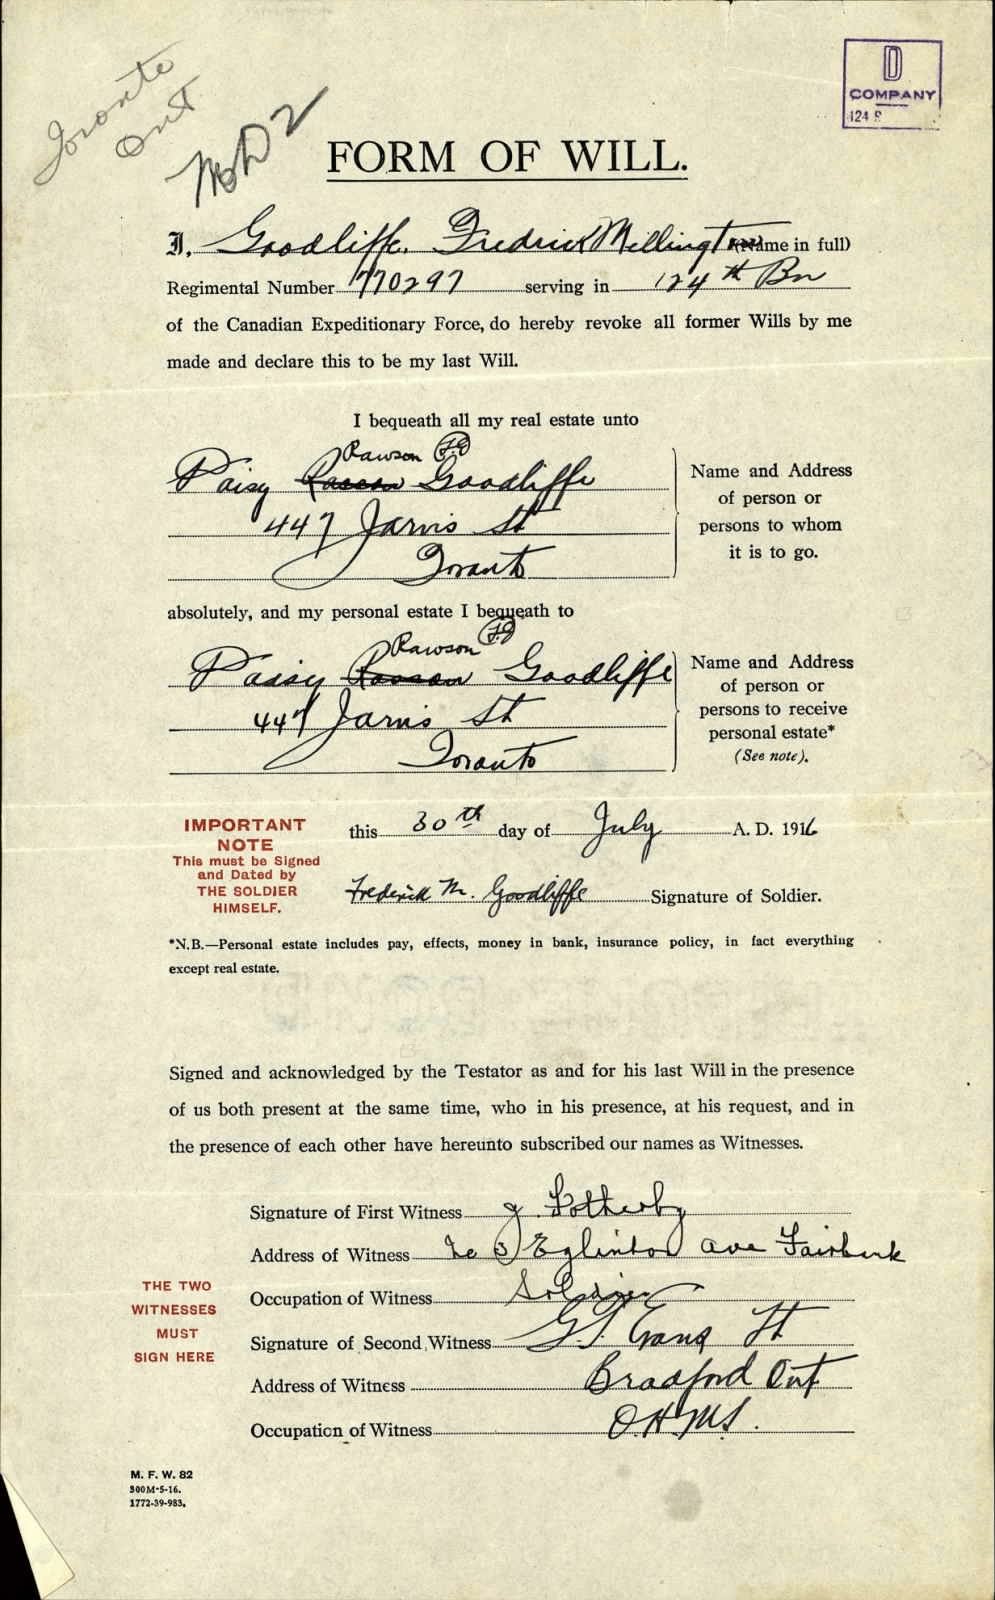 Toronto
Ont
D
COMPANY
124 B
M&D 2
FORM OF WILL.
I, Goodliffe, Fredrick Millington (Name in full)
Regimental Number 770297 serving in 124th Bn
of the Canadian Expeditionary Force, do hereby revoke all former Wills by me
made and declare this to be my last Will.
I bequeath all my real estate unto
Rawson F.G
Daisy Rawson Goodliffe
447 Jarvis St
Toronto
Name and Address
of person or
persons to whom
it is to go.
absolutely, and my personal estate I bequeath to
Rawson F.G
Daisy Rawson Goodliffe
447 Jarvis St
Toronto
Name and Address
of person or
persons to receive
personal estate*
(See note).
IMPORTANT
NOTE
This must be Signed
and Dated by
THE SOLDIER
HIMSELF.
this 30th day of July A. D. 1916
Frederick M. Goodliffe Signature of Soldier.
*N.B.—Personal estate includes pay, effects, money in bank, insurance policy, in fact everything
except real estate.
Signed and acknowledged by the Testator as and for his last Will in the presence
of us both present at the same time, who in his presence, at his request, and in
the presence of each other have hereunto subscribed our names as Witnesses.
THE TWO
WITNESSES
MUST
SIGN HERE
Signature of First Witness J. Fotherby
Address of Witness Eglinton ave Fairbank
Occupation of Witness Soldier
Signature of Second Witness G.T. Evans Lt
Address of Witness Bradford Ont
Occupation of Witness O.H.M.S.
M. F. W. 82
300M-5-16.
1772-39-983.